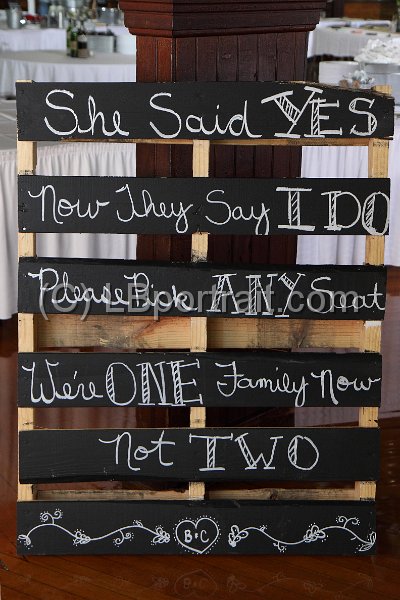 She Said YES
Now They Say I DO
Please Pick ANY Seat
(C) LBportrait.com
We're ONE Family Now
Not TWO
B+C